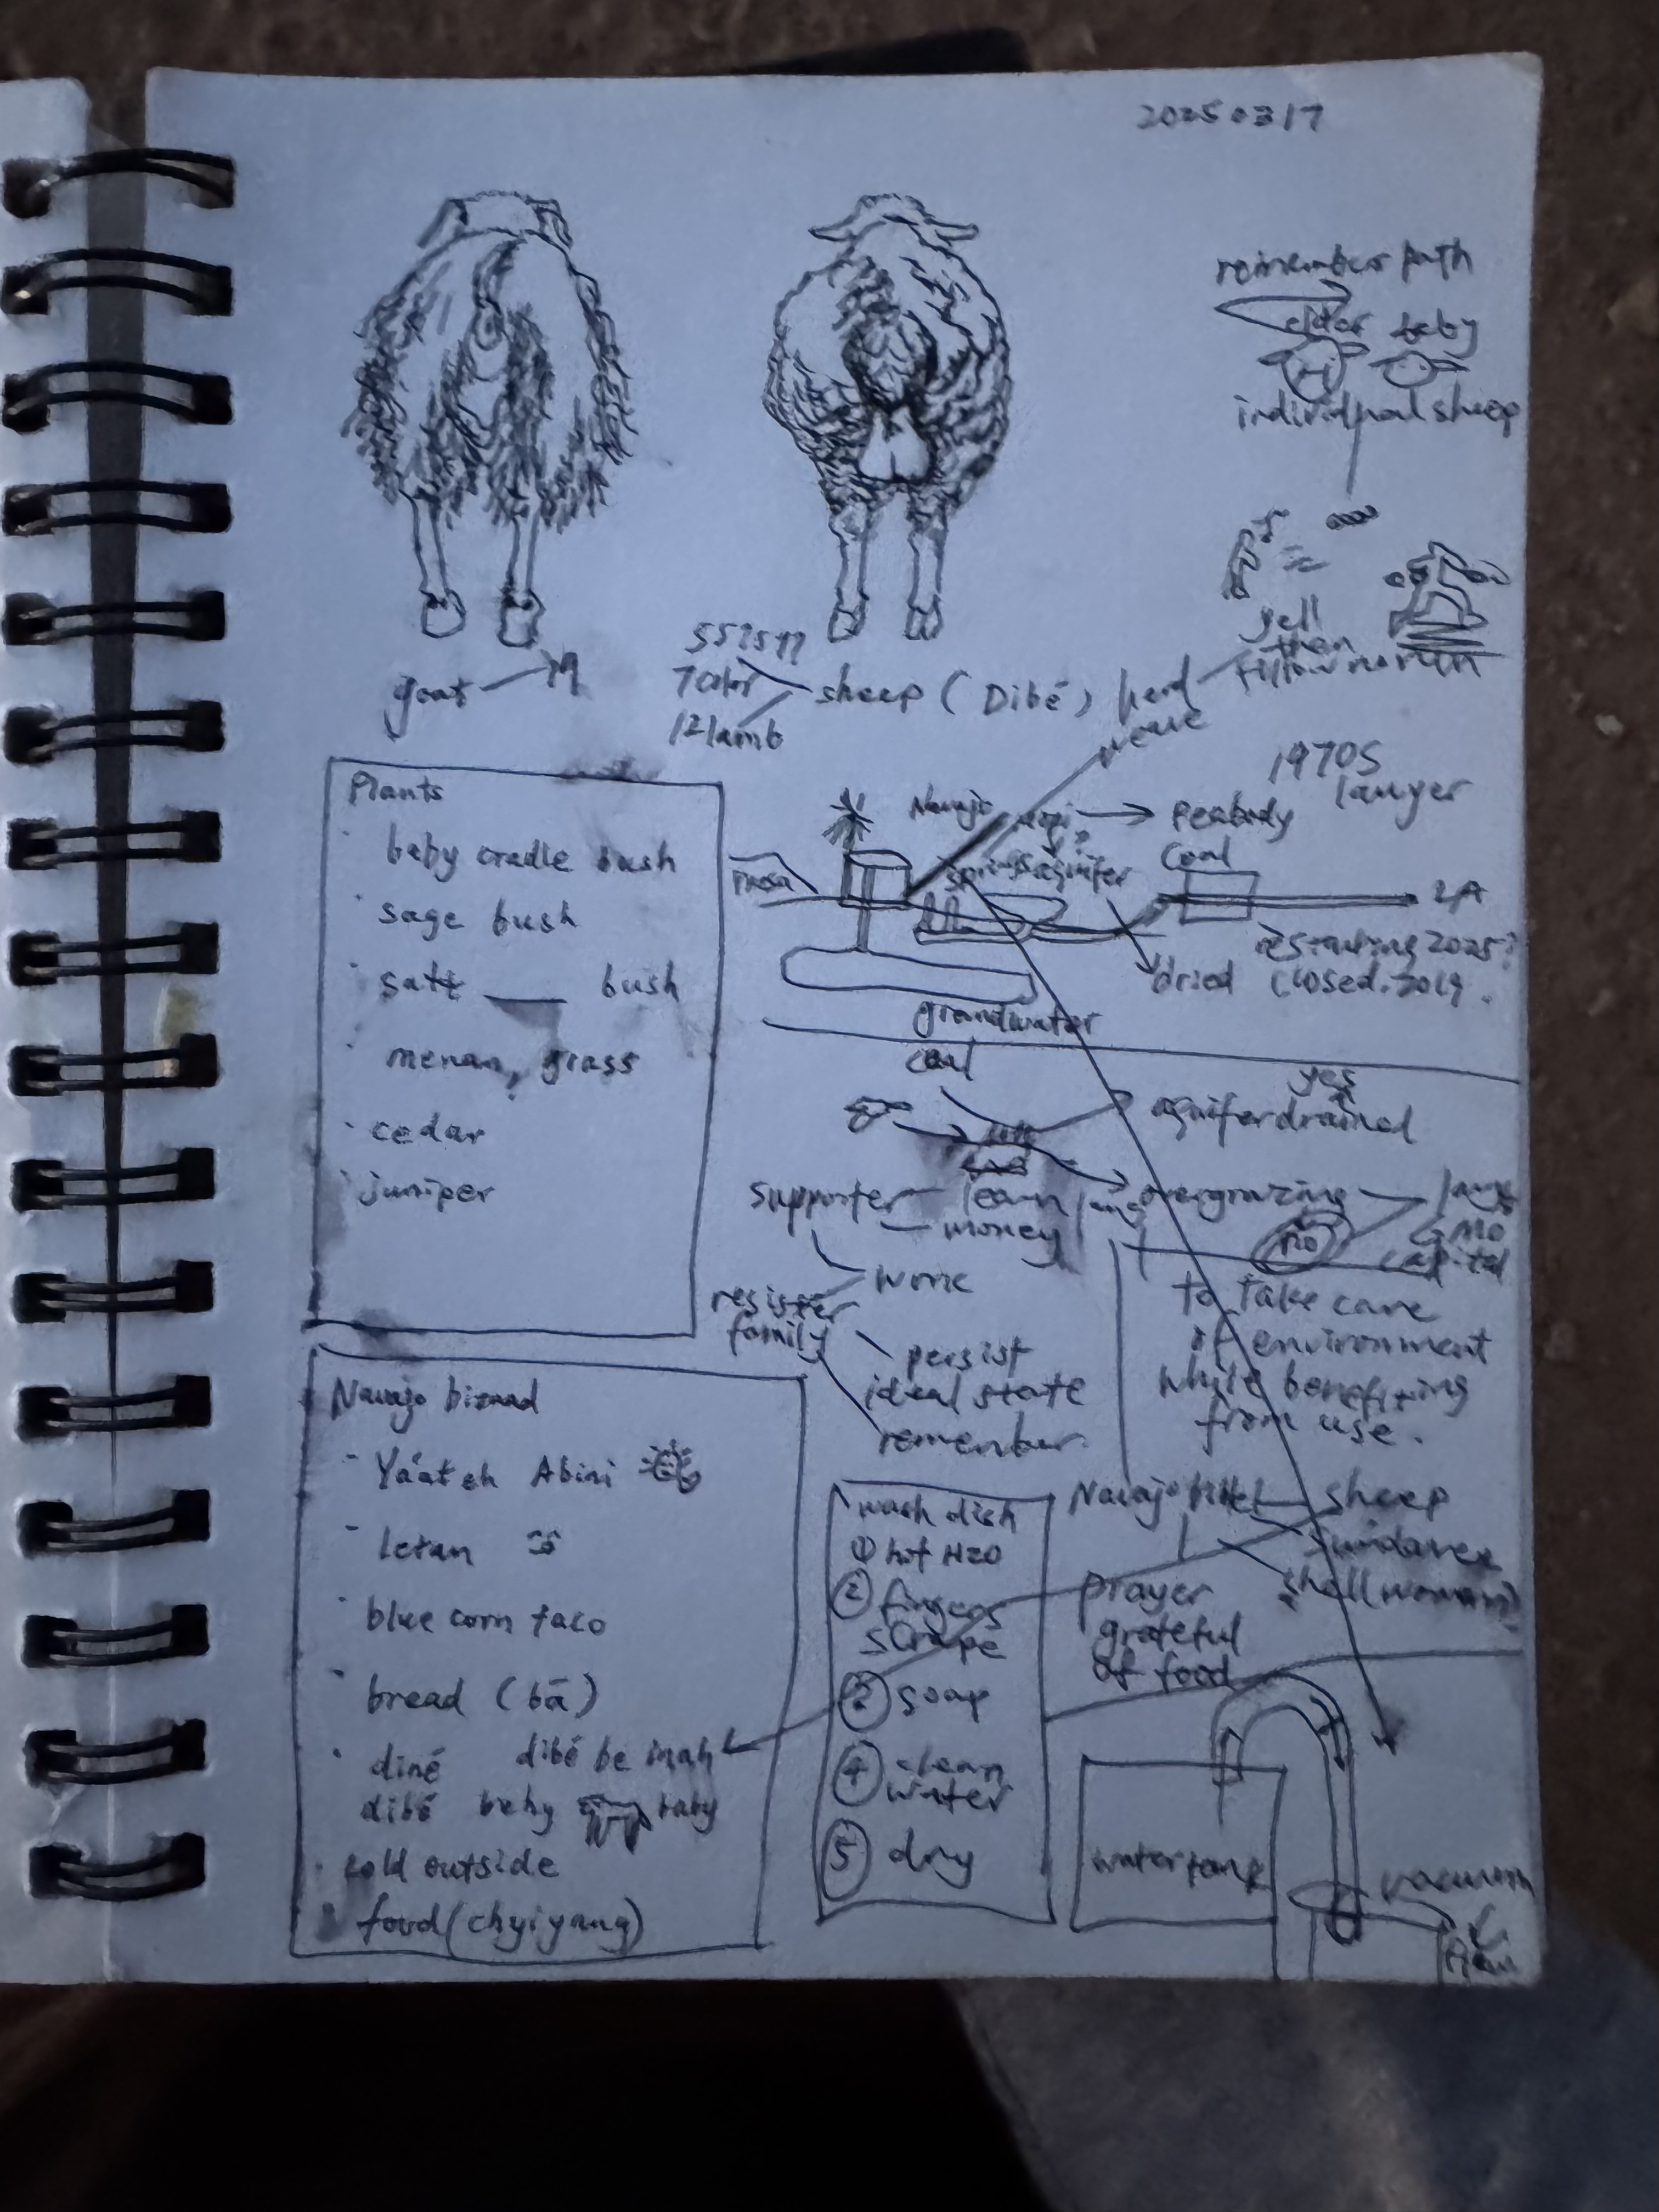 20250317
remember path
elder baby
individual sheep
yell
then
follow no run
goat
19
7 color
12 lamb
sheep (Dibé) herd
1970s
lawyer
Plants
· baby cradle bush
· sage bush
· salt ___ bush
grass
· cedar
· juniper
Navajo
→ Peabody
Coal
mesa
aquifer
LA
restarting 2025?
closed. 2019.
dried
groundwater
coal
yes
aquifer drained
overgrazing
no
supporter
learn
money
work
resister
family
persist
ideal state
remember.
to take care
of environment
while benefiting
from use.
Navajo bizaad
· Yá'áteh Abini
- letan
· blue corn taco
· bread (bá)
· diné
dibé be inah
dibé baby
baby
· cold outside
food (chyiyang)
wash dish
① hot H2O
② fingers
scrape
③ soap
④ clean
water
⑤ dry
Navajo
sheep
prayer
grateful
of food
water tank
vacuum